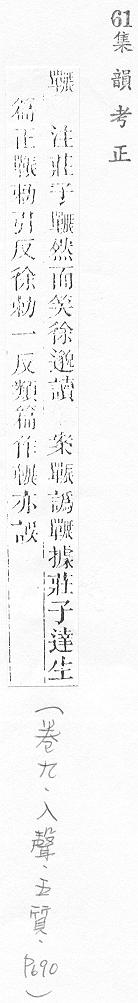 61
集韻考正
囅 注莊子囅然而笑徐邈讀 案辴譌囅據莊子達生
篇正辴勑引反徐勑一反類篇作囅亦誤
(卷九、入聲、五質、P690)